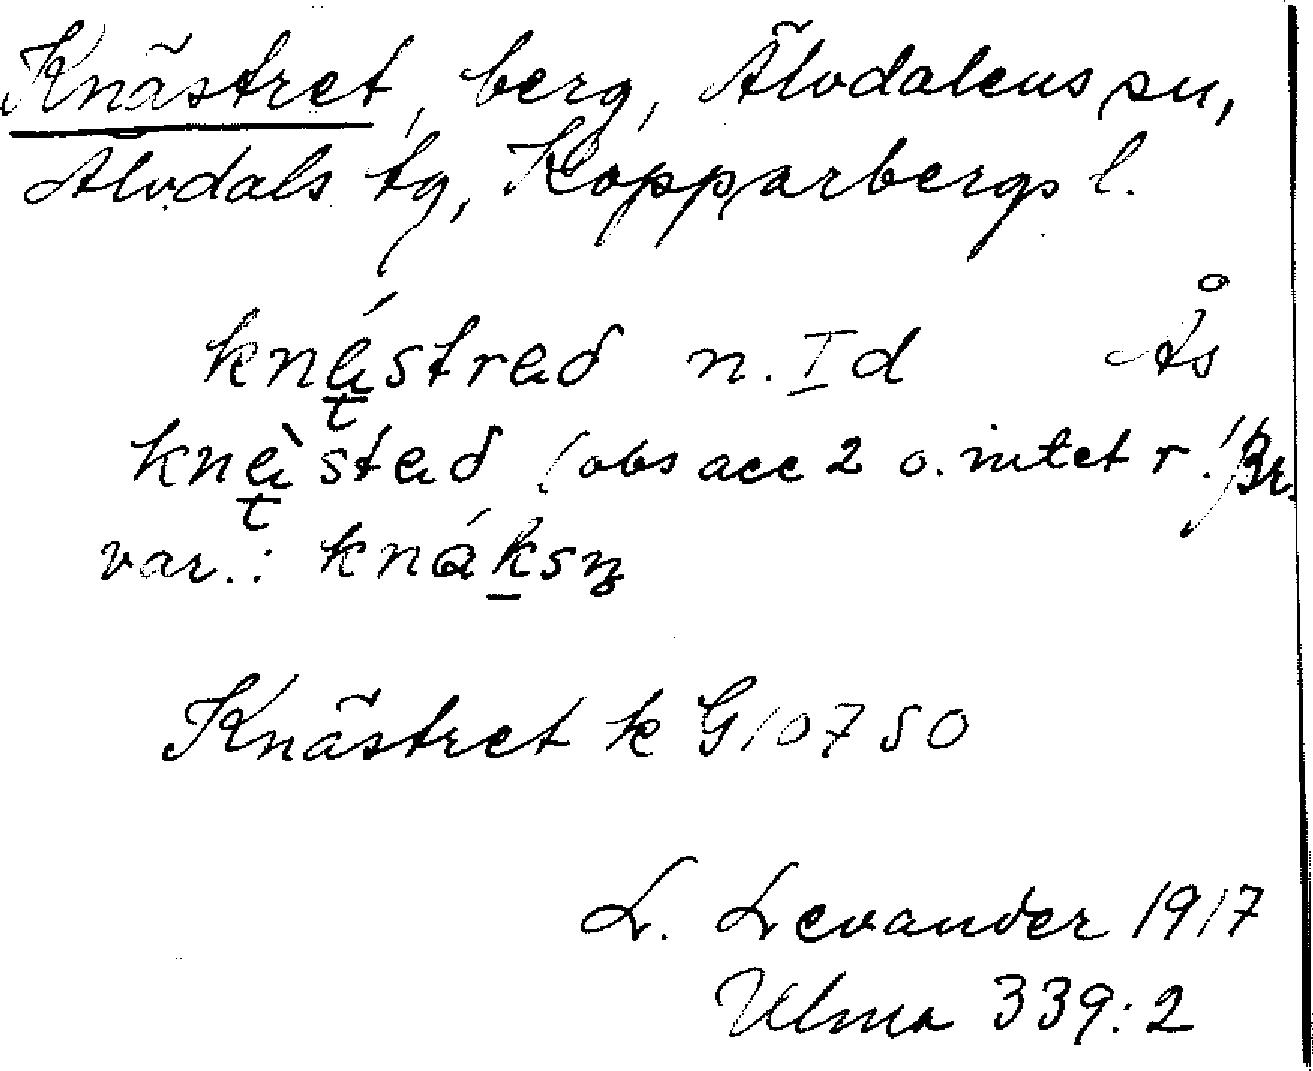 Knästret, berg, Älvdalens sn,
Älvdals tg, Kopparbergs l.
n. I d Ås
(obs acc 2 o. intet r!) Br.
var.: knáksn̥
Knästret k G10750
L. Levander 1917
Ulma 339:2